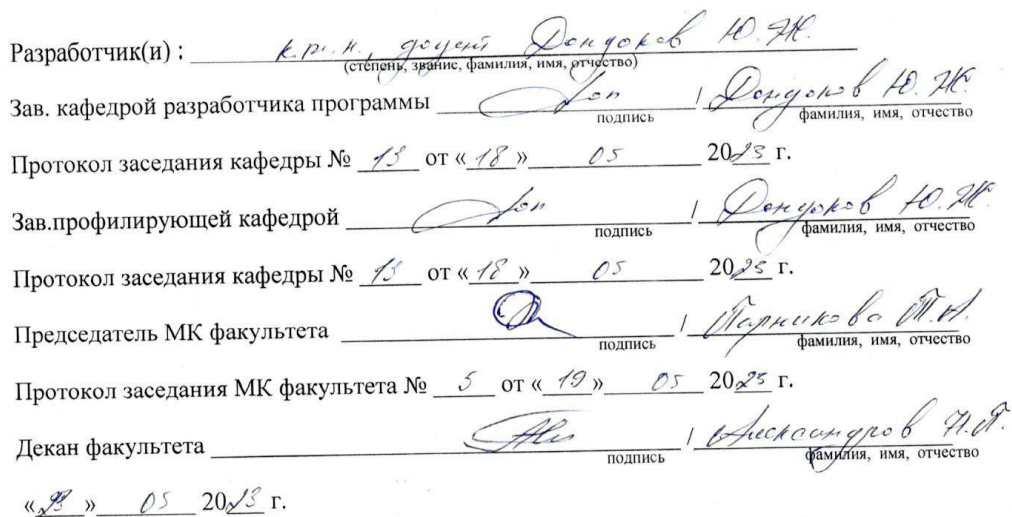 Разработчик(и) : к.т.н., доцент Дондоков Ю.Ж.
(степень, звание, фамилия, имя, отчество)
Зав. кафедрой разработчика программы / Дондоков Ю.Ж.
подпись фамилия, имя, отчество
Протокол заседания кафедры № 13 от « 18 » 05 2023 г.
Зав.профилирующей кафедрой / Дондоков Ю.Ж.
подпись фамилия, имя, отчество
Протокол заседания кафедры № 13 от « 18 » 05 2023 г.
Председатель МК факультета / Парникова Т.А.
подпись фамилия, имя, отчество
Протокол заседания МК факультета № 5 от « 19 » 05 2023 г.
Декан факультета / Александров Н.П.
подпись фамилия, имя, отчество
« 23 » 05 2023 г.